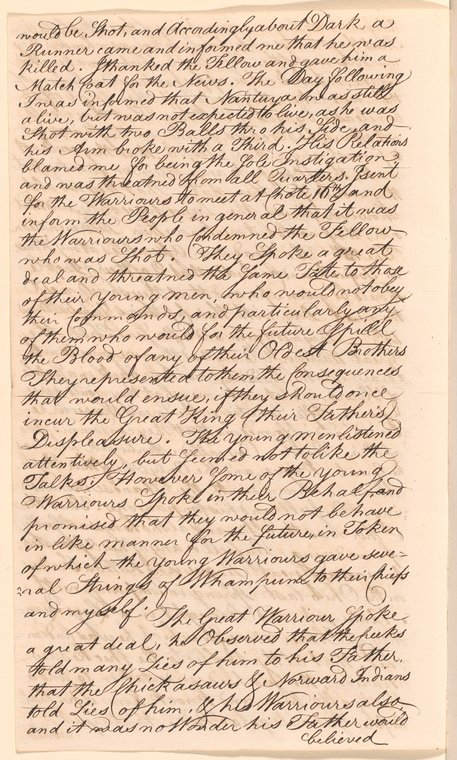 would be Shot, and Accordingly about Dark a
Runner came and informed me that he was
killed. I thanked the Fellow and gave him a
Match Coat for the News. The Day following
I was informed that Nantuya was still
alive, but was not expected to live, as he was
Shot with two Balls thro his Side, and
his Arm broke with a Third. His Relations
blamed me for being the Sole Instigation
and was threatned from all Quarters. I sent
for the Warriours to meet at Chote 16th and
inform the People in general that it was
the Warriours who Condemned the Fellow
who was Shot. They Spoke a great
deal and threatned the Same Fate to those
of their Young men, who would not obey
their Commands, and particularly any
of them who would for the future Spill
the Blood of any of their Oldest Brothers
They represented to them the Consequences
that would ensue, if they should once
incur the Great King (their Father's)
Displeasure. The young men listened
attentively, but seemed not to like the
Talks. However Some of the young
Warriours Spoke in their Behalf and
promised that they would not behave
in like manner for the future, in Token
of which the young Warriours gave seve-
ral Strings of Whampum to their Chiefs
and myself. The Great Warriour Spoke
a great deal, he Observed that the Creeks
told many Lies of him to his Father,
that the Chickasaws & Norward Indians
told Lies of him, & his Warriours also
and it was no Wonder his Father would
believed